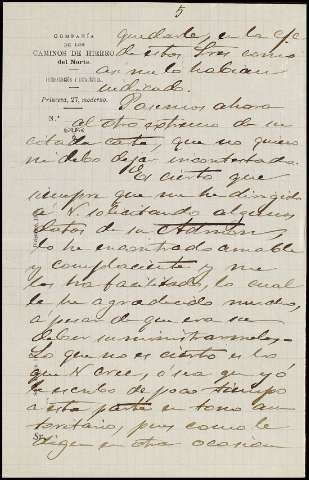 5
COMPAÑÍA
DE LOS
CAMINOS DE HIERRO
del Norte.
Princesa, 27, moderno.
N.º
quedarle, en la
de estos Sres como
asi me lo habian
indicado.
Pasemos ahora
al otro extremo de su
citada carta, que no quiero
ni debo dejar incontestado.
Es cierto que
siempre que me he dirigido
á V. solicitando algunos
datos de su Admón,
lo he encontrado amable
y complaciente y me
los ha facilitado, lo cual
le he agradecido mucho,
á pesar de que era su
deber suministrarmelos.
Lo que no es cierto es lo
que V. cree, ó sea que yó
le escribo de poco tiempo
a esta parte en tono au-
toritario, pues como le
digo en otra ocasion